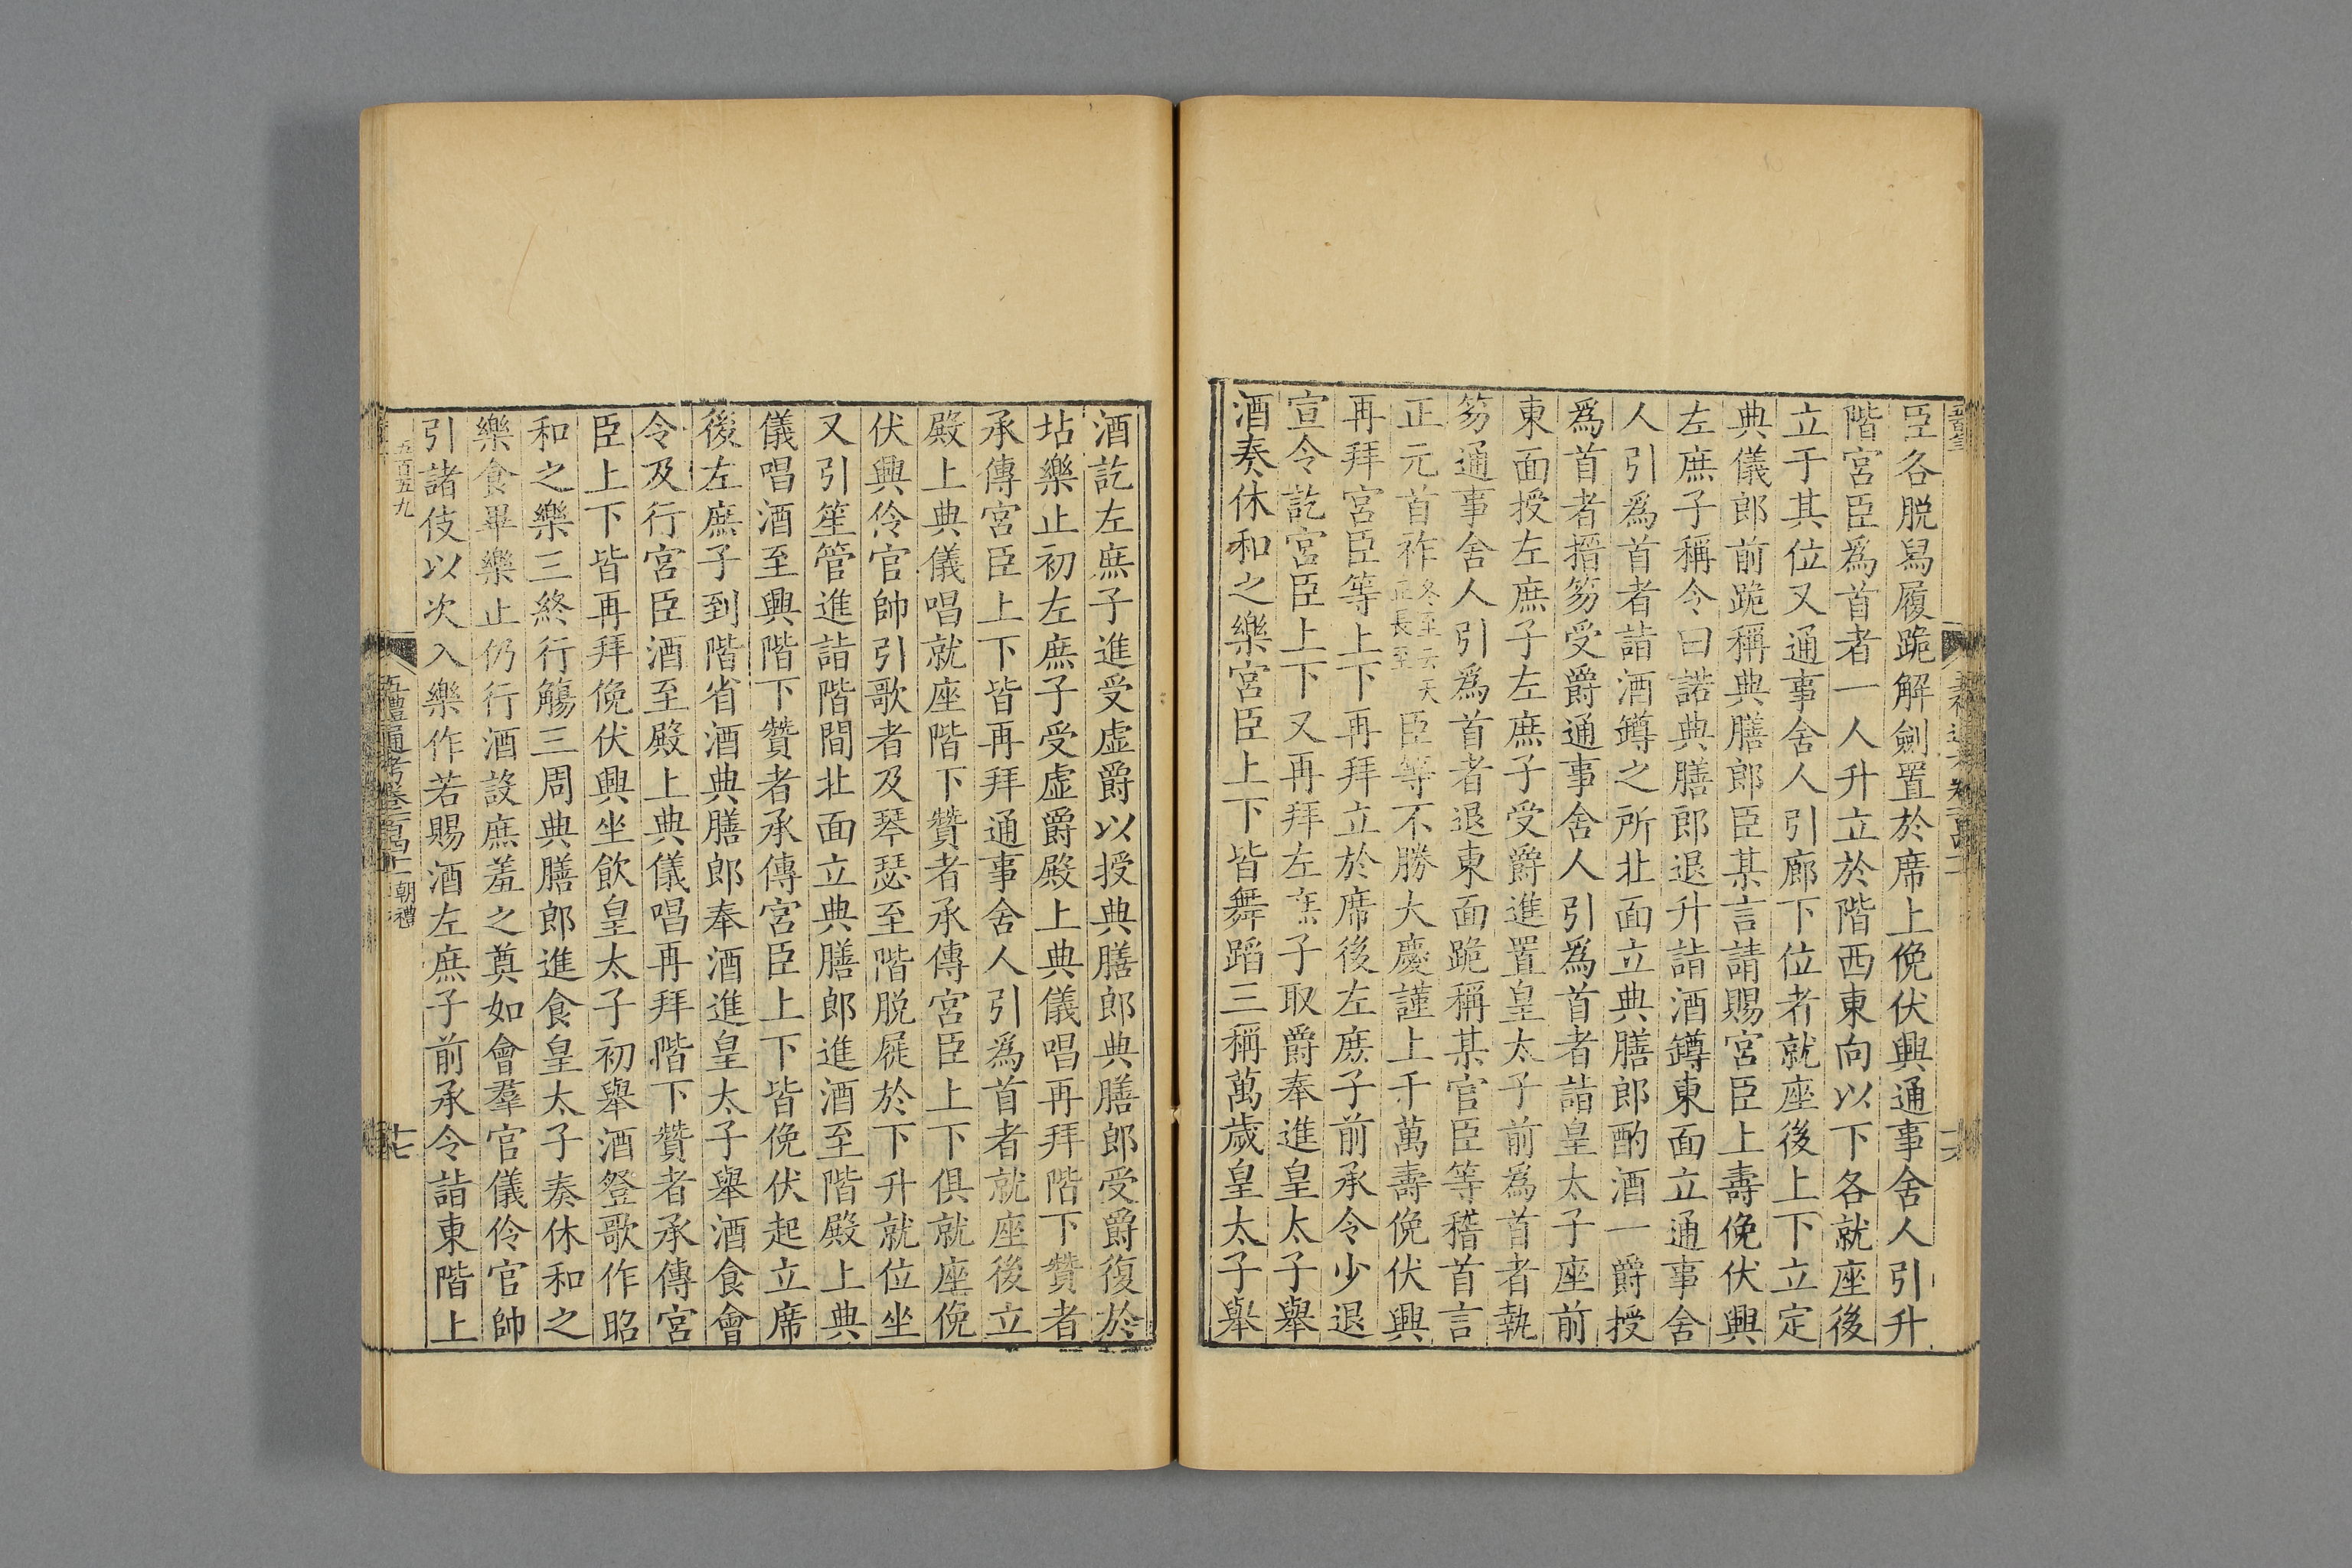 臣各脫舄履跪解劍置於席上俛伏興通事舍人引升
階宮臣爲首者一人升立於階西東向以下各就座後
立于其位又通事舍人引廊下位者就座後上下立定
典儀郎前跪稱典膳郎臣某言請賜宮臣上壽俛伏興
左庶子稱令曰諾典膳郎退升詣酒鐏東面立通事舍
人引爲首者詣酒鐏之所北面立典膳郎酌酒一爵授
爲首者搢笏受爵通事舍人引爲首者詣皇太子座前
東面授左庶子左庶子受爵進置皇太子前爲首者執
笏通事舍人引爲首者退東面跪稱某官臣等稽首言
正元首祚冬至云天正長至臣等不勝大慶謹上千萬壽俛伏興
再拜宮臣等上下再拜立於席後左庶子前承令少退
宣令訖宮臣上下又再拜左庶子取爵奉進皇太子舉
酒奏休和之樂宮臣上下皆舞蹈三稱萬歲皇太子舉
酒訖左庶子進受虛爵以授典膳郎典膳郎受爵復於
坫樂止初左庶子受虛爵殿上典儀唱再拜階下贊者
承傳宮臣上下皆再拜通事舍人引爲首者就座後立
殿上典儀唱就座階下贊者承傳宮臣上下俱就座俛
伏興伶官帥引歌者及琴瑟至階脫屣於下升就位坐
又引笙管進詣階間北面立典膳郎進酒至階殿上典
儀唱酒至興階下贊者承傳宮臣上下皆俛伏起立席
後左庶子到階省酒典膳郎奉酒進皇太子舉酒食會
令及行宮臣酒至殿上典儀唱再拜階下贊者承傳宮
臣上下皆再拜俛伏興坐飲皇太子初舉酒登歌作昭
和之樂三終行觴三周典膳郎進食皇太子奏休和之
樂食畢樂止仍行酒設庶羞之奠如會羣官儀伶官帥
引諸伎以次入樂作若賜酒左庶子前承令詣東階上
五百五九
五禮通考卷一百四十一 朝禮
十七